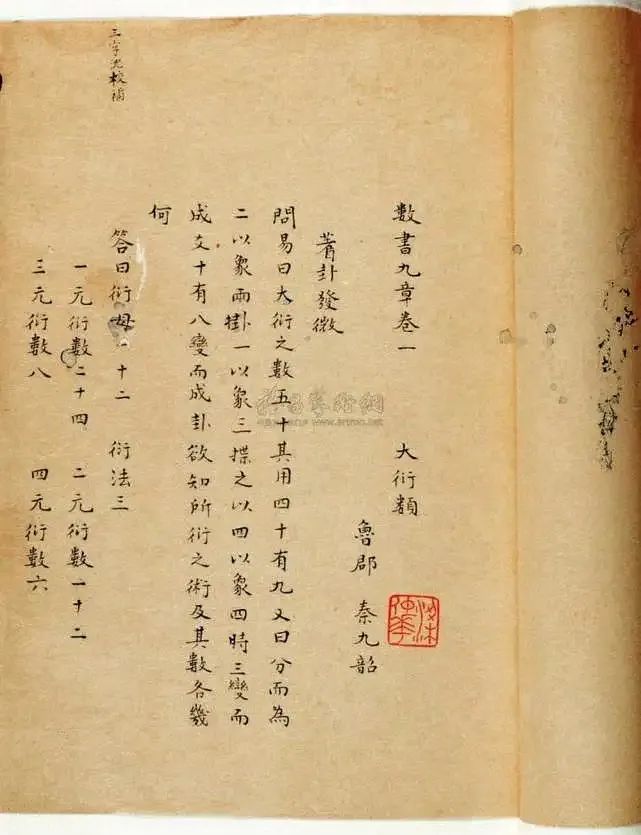 數書九章卷一　大衍類
魯郡　秦九韶
蓍卦發微
問易曰大衍之數五十其用四十有九又曰分而為
二以象兩掛一以象三揲之以四以象四時三變而
成爻十有八變而成卦欲知所衍之術及其數各幾
何
答曰衍母一十二　衍法三
一元衍數二十四　二元衍數一十二
三元衍數八　四元衍數六
三字　校補